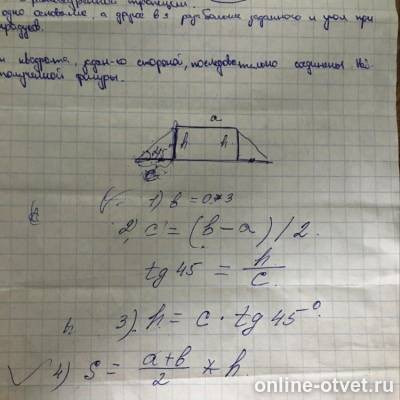 равнобедренной трапеции.
одно основание, а другое в 3 раза больше заданного и угол при
градусов.
квадрата, стороной, последовательно соединены
полученной фигуры.
a
h h
45°
c
1) b = a*3
2) c = (b-a)/2.
tg 45 = h/c
h 3) h = c · tg 45°.
4) S = (a+b)/2 * h
online-otvet.ru